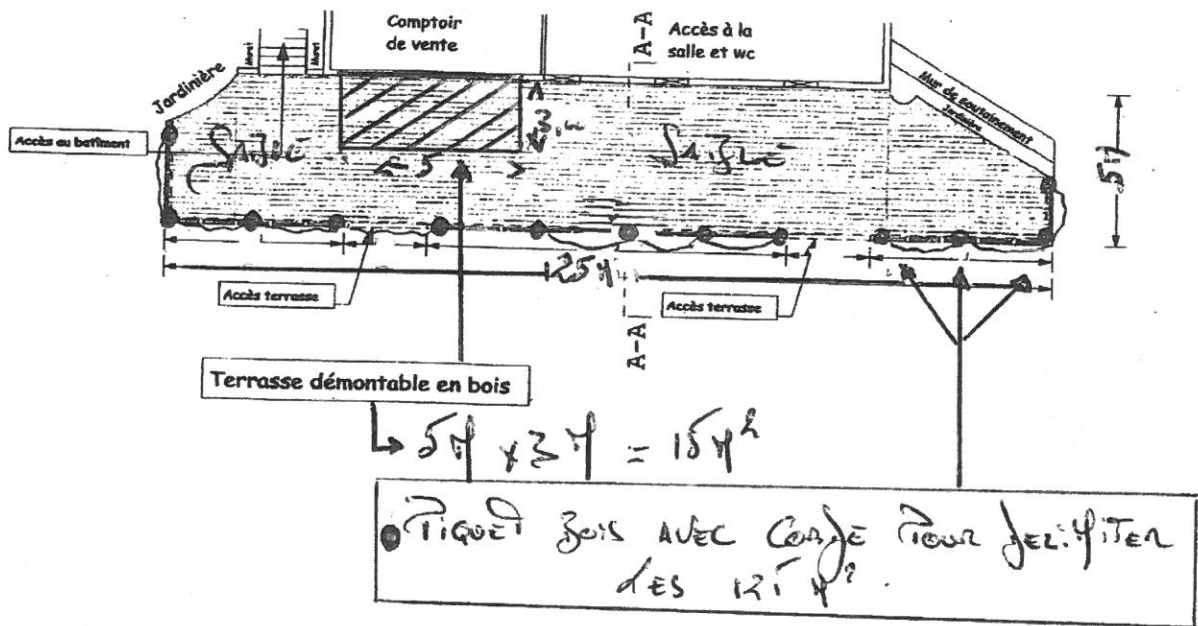 Comptoir
de vente
A-A
Accès à la
salle et wc
Muret
Muret
Jardinière
Mur de soutainement
Jardinière
Accès au batiment
SABLE
SABLE
5
5M
125M
Accès terrasse
Accès terrasse
A-A
Terrasse démontable en bois
5M x 3M = 15M²
PIQUET BOIS AVEC CORDE POUR DELIMITER
LES 125 M².